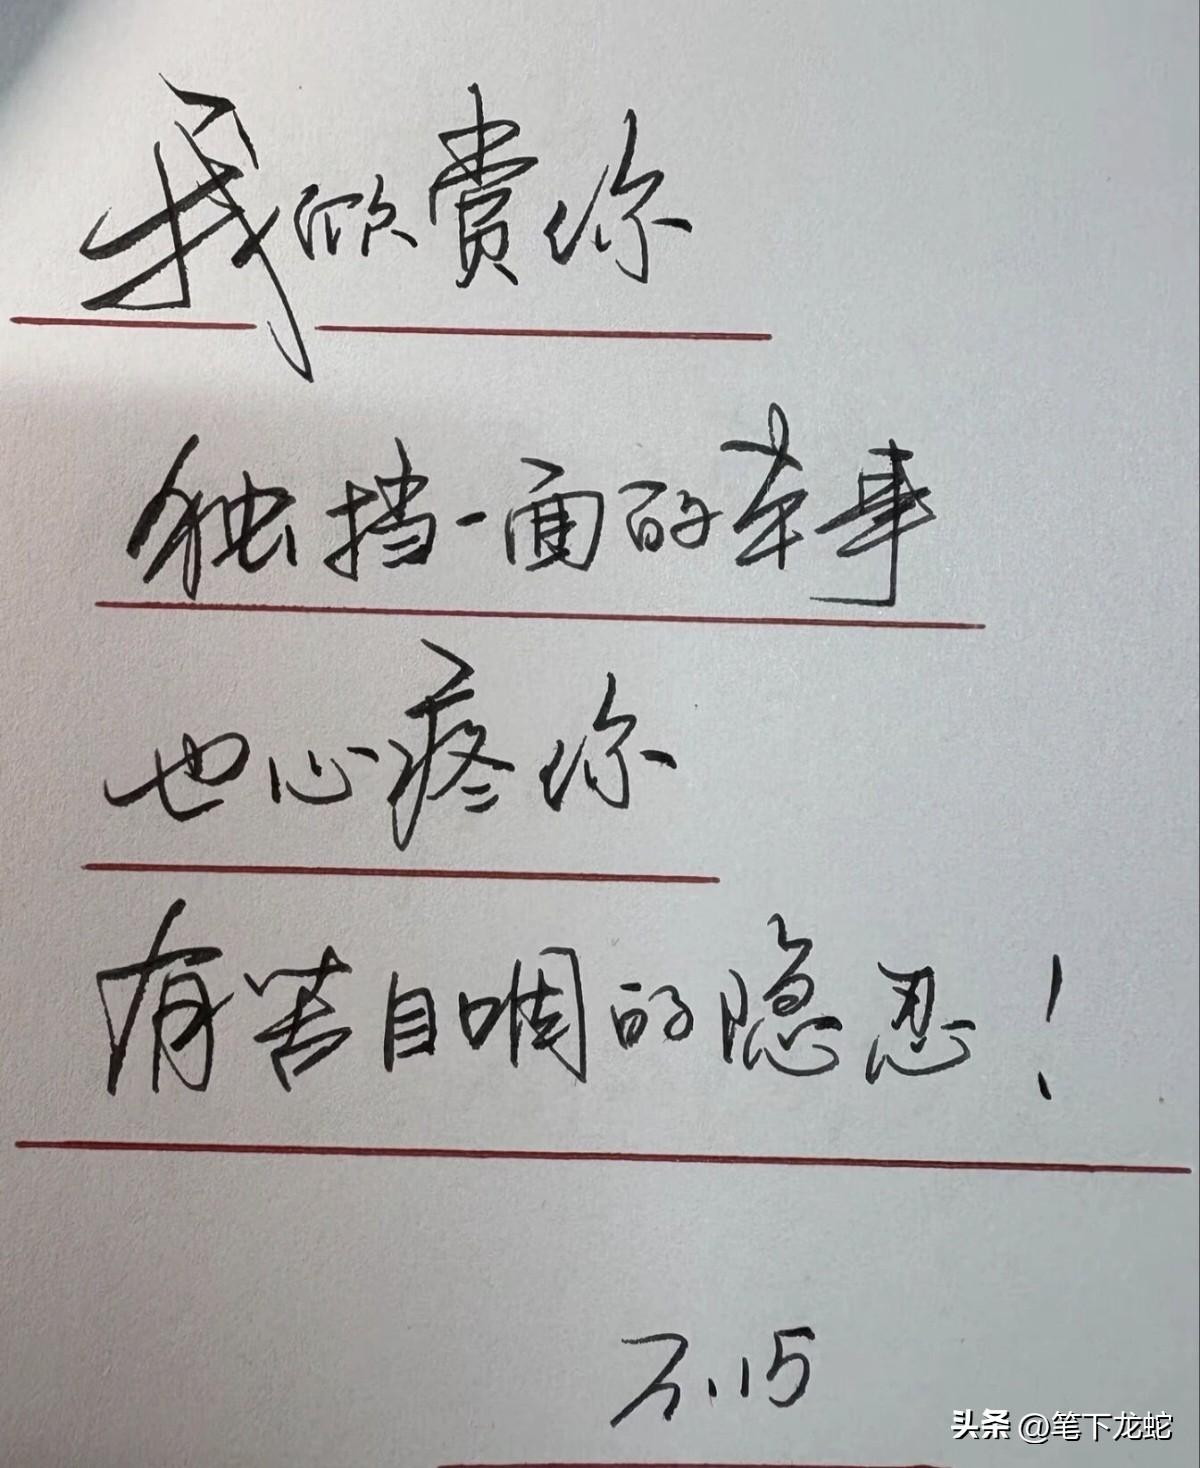 我欣赏你
独挡一面的本事
也心疼你
有苦自咽的隐忍！
.15
头条 @笔下龙蛇